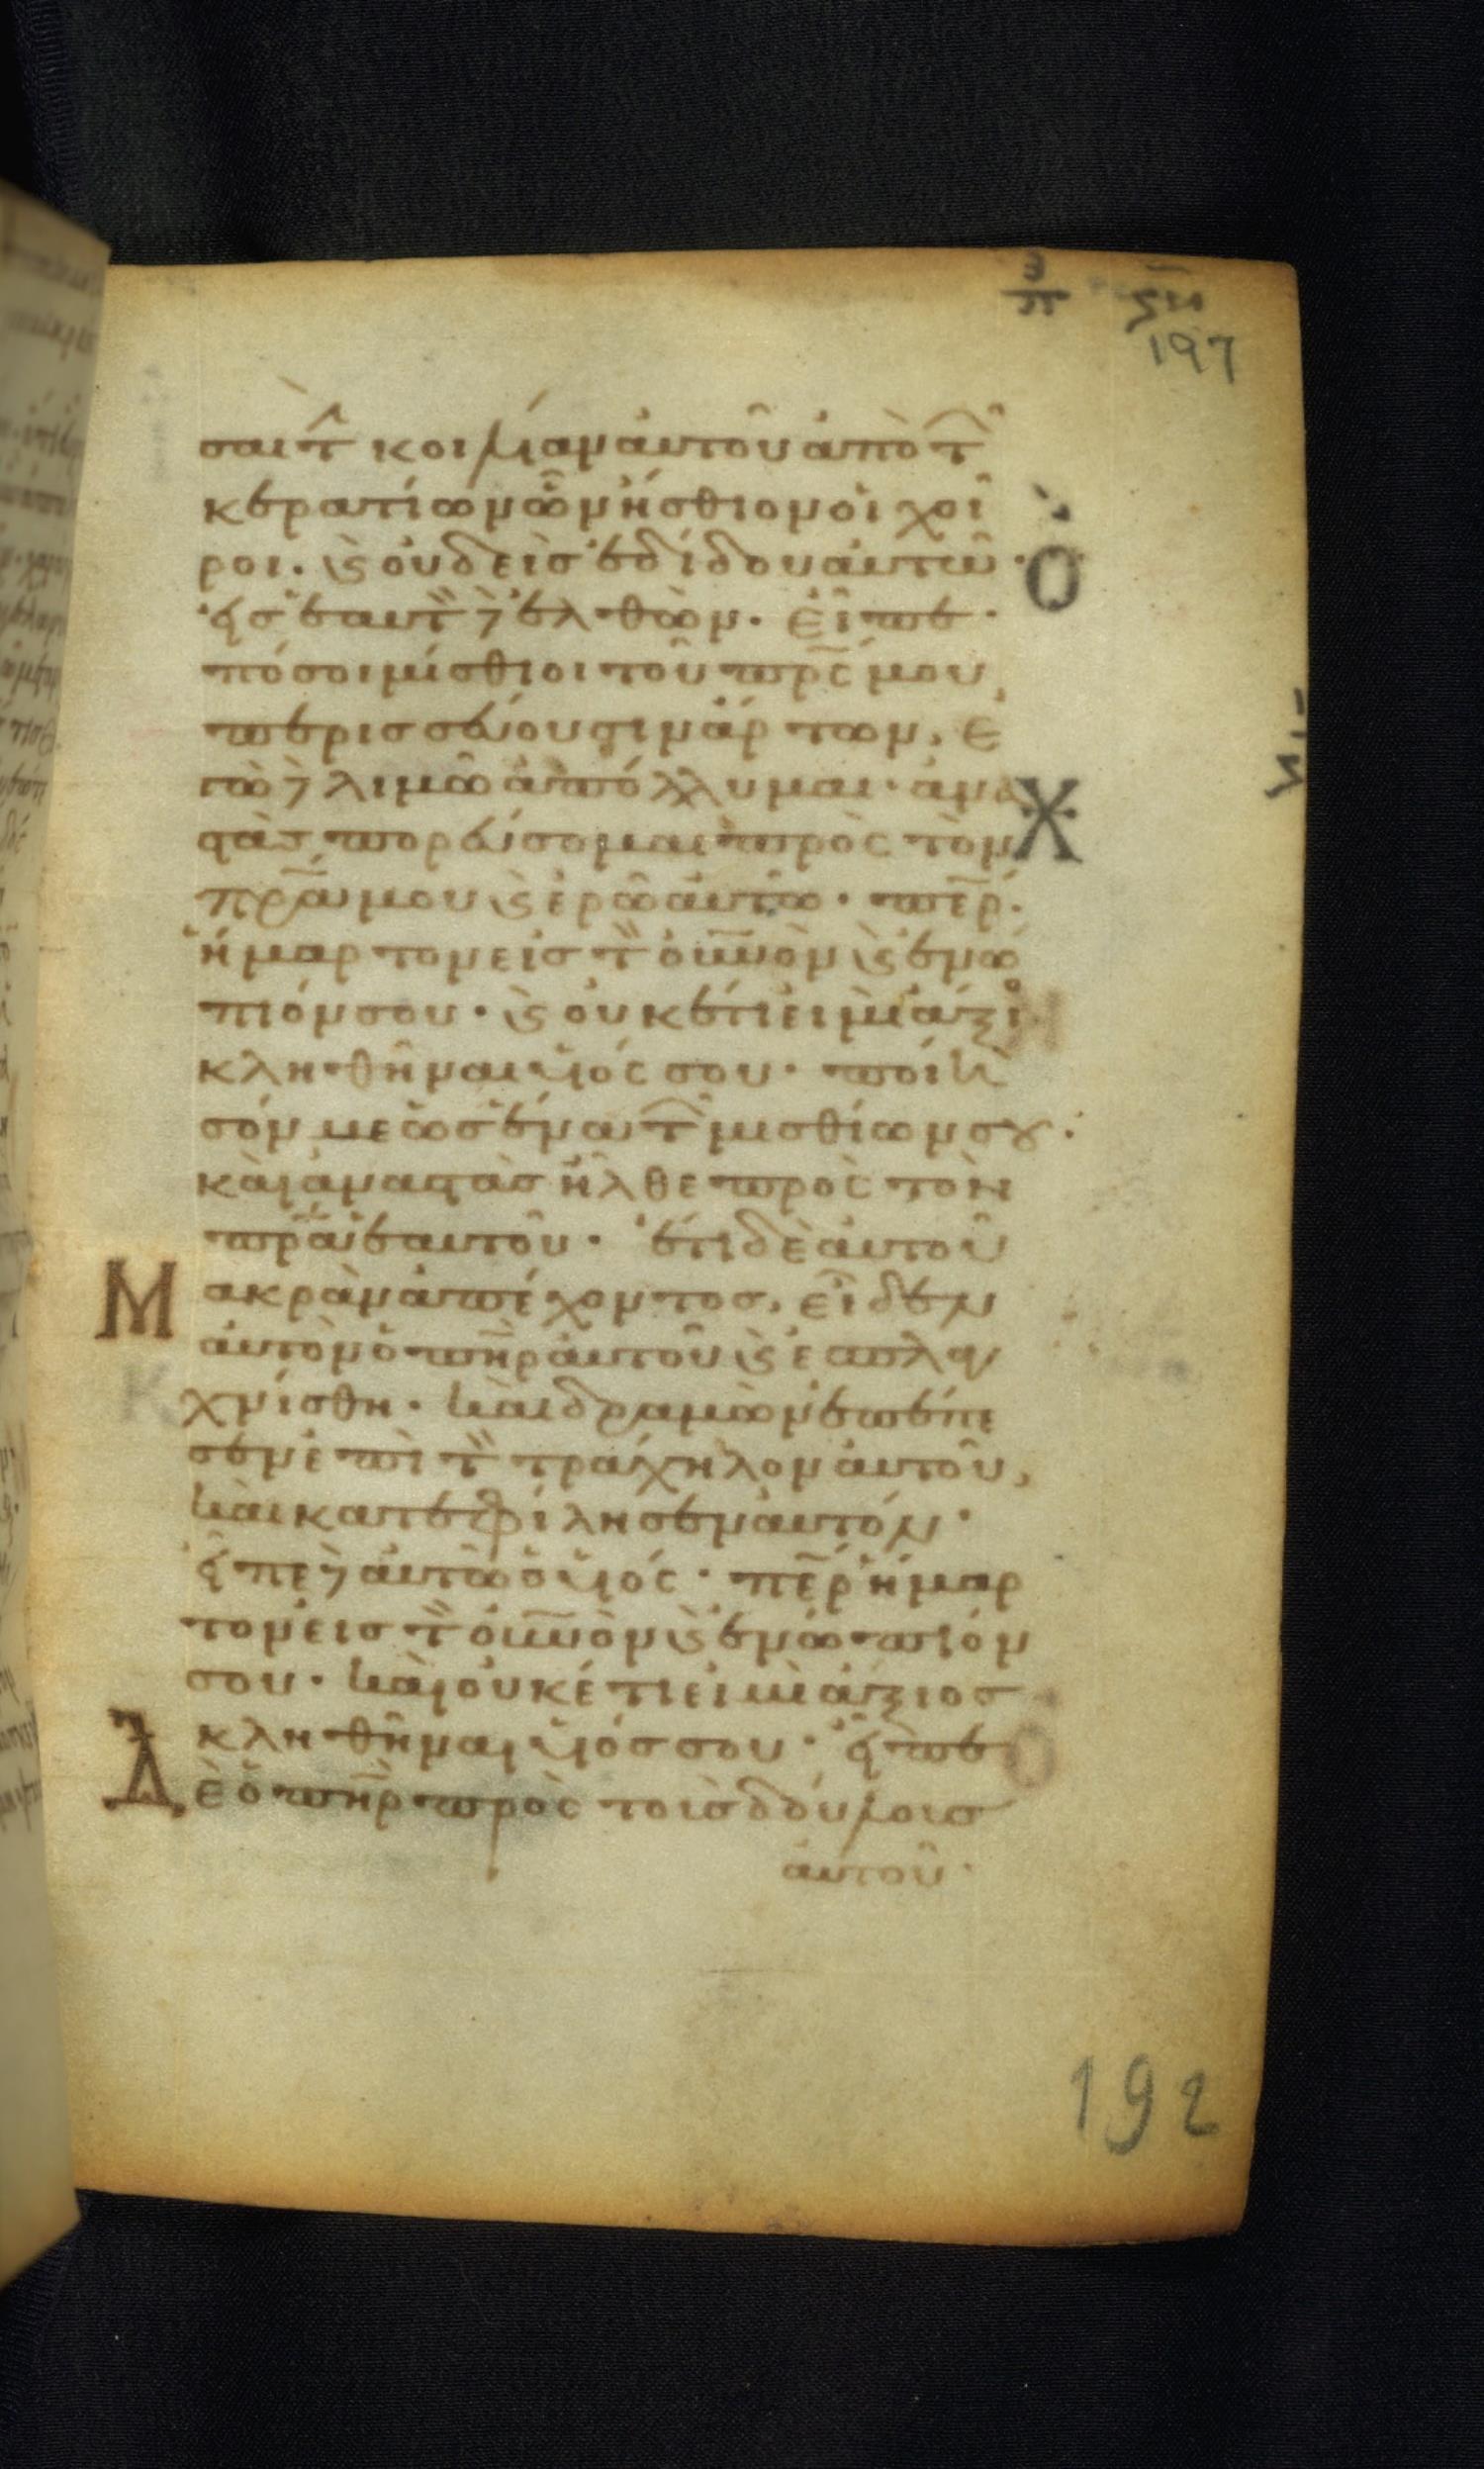 197
σαι τ̂ κοιλίαν αὐτοῦ ἀπὸ τ̂
κερατίων ὧν ἤσθιον οἱ χοῖ
ροι. ϗ οὐδεὶς ἐδίδου αὐτῶ·
εἰς ἑαυτ̀ δ̀ ἐλθὼν. εἶπε·
πόσοι μίσθιοι τοῦ πρ̅ς μου,
περισσεύουσιν ἄρτων, ἐ
γὼ δ̀ λιμῶ ἀπόλλυμαι· ἀνα
στὰς πορεύσομαι πρὸς τὸν
πρ̅α μου ϗ ἐρῶ αὐτῶ· πε̅ρ.
ἥμαρτον εἰς τ̀ οὐν̅ὸν ϗ ἐνώ
πιόν σου· ϗ οὐκέτι εἰμὶ ἄξιο
κληθῆναι υἱός σου· ποίη
σόν με ὡς ἕνα τ̂ μισθίων σȣ·
καὶ ἀναστὰς ἦλθε πρὸς τὸν
πρ̅α ἑαυτοῦ· ἔτι δὲ αὐτοῦ
Μακρὰν ἀπέχοντος, εἶδεν
αὐτὸν ὁ πη̅ρ αὐτοῦ ϗ ἐσπλαγ
χνίσθη· καὶ δραμὼν ἐπέπε
σεν ἐπὶ τ̀ τράχηλον αὐτοῦ,
καὶ κατεφίλησεν αὐτόν·
εἶπε δ̀ αὐτῶ ὁ υἱός· πε̅ρ ἥμαρ
τον εἰς τ̀ οὐν̅ὸν ϗ ἐνώπιόν
σου· καὶ οὐκέτι εἰμὶ ἄξιος
κληθῆναι υἱός σου· εἶπε
Δὲ ὁ πη̅ρ πρὸς τοὺς δούλους
αὐτοῦ·
192